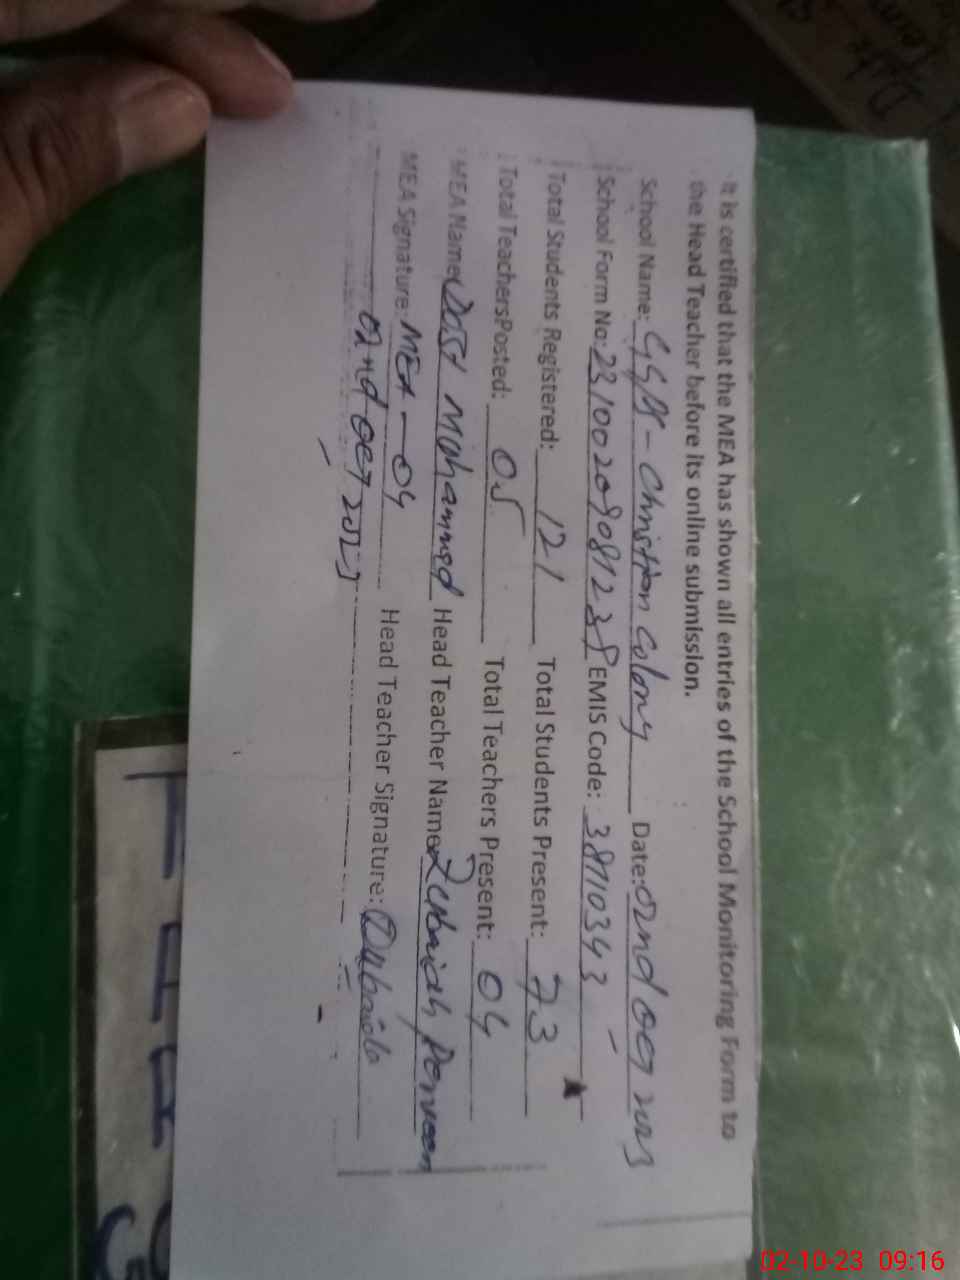 It is certified that the MEA has shown all entries of the School Monitoring Form to
the Head Teacher before its online submission.
School Name: GGPS - Christian Colony Date: 02nd oct 2023
School Form No: EMIS Code: 38710343
Total Students Registered: 121 Total Students Present: 73
Total TeachersPosted: 05 Total Teachers Present: 04
MEA Name: Dost Mohammed Head Teacher Name: Zubaidah Perveen
MEA Signature: MEA - 04 Head Teacher Signature: Zubaida
02nd oct 2023
02-10-23 09:16